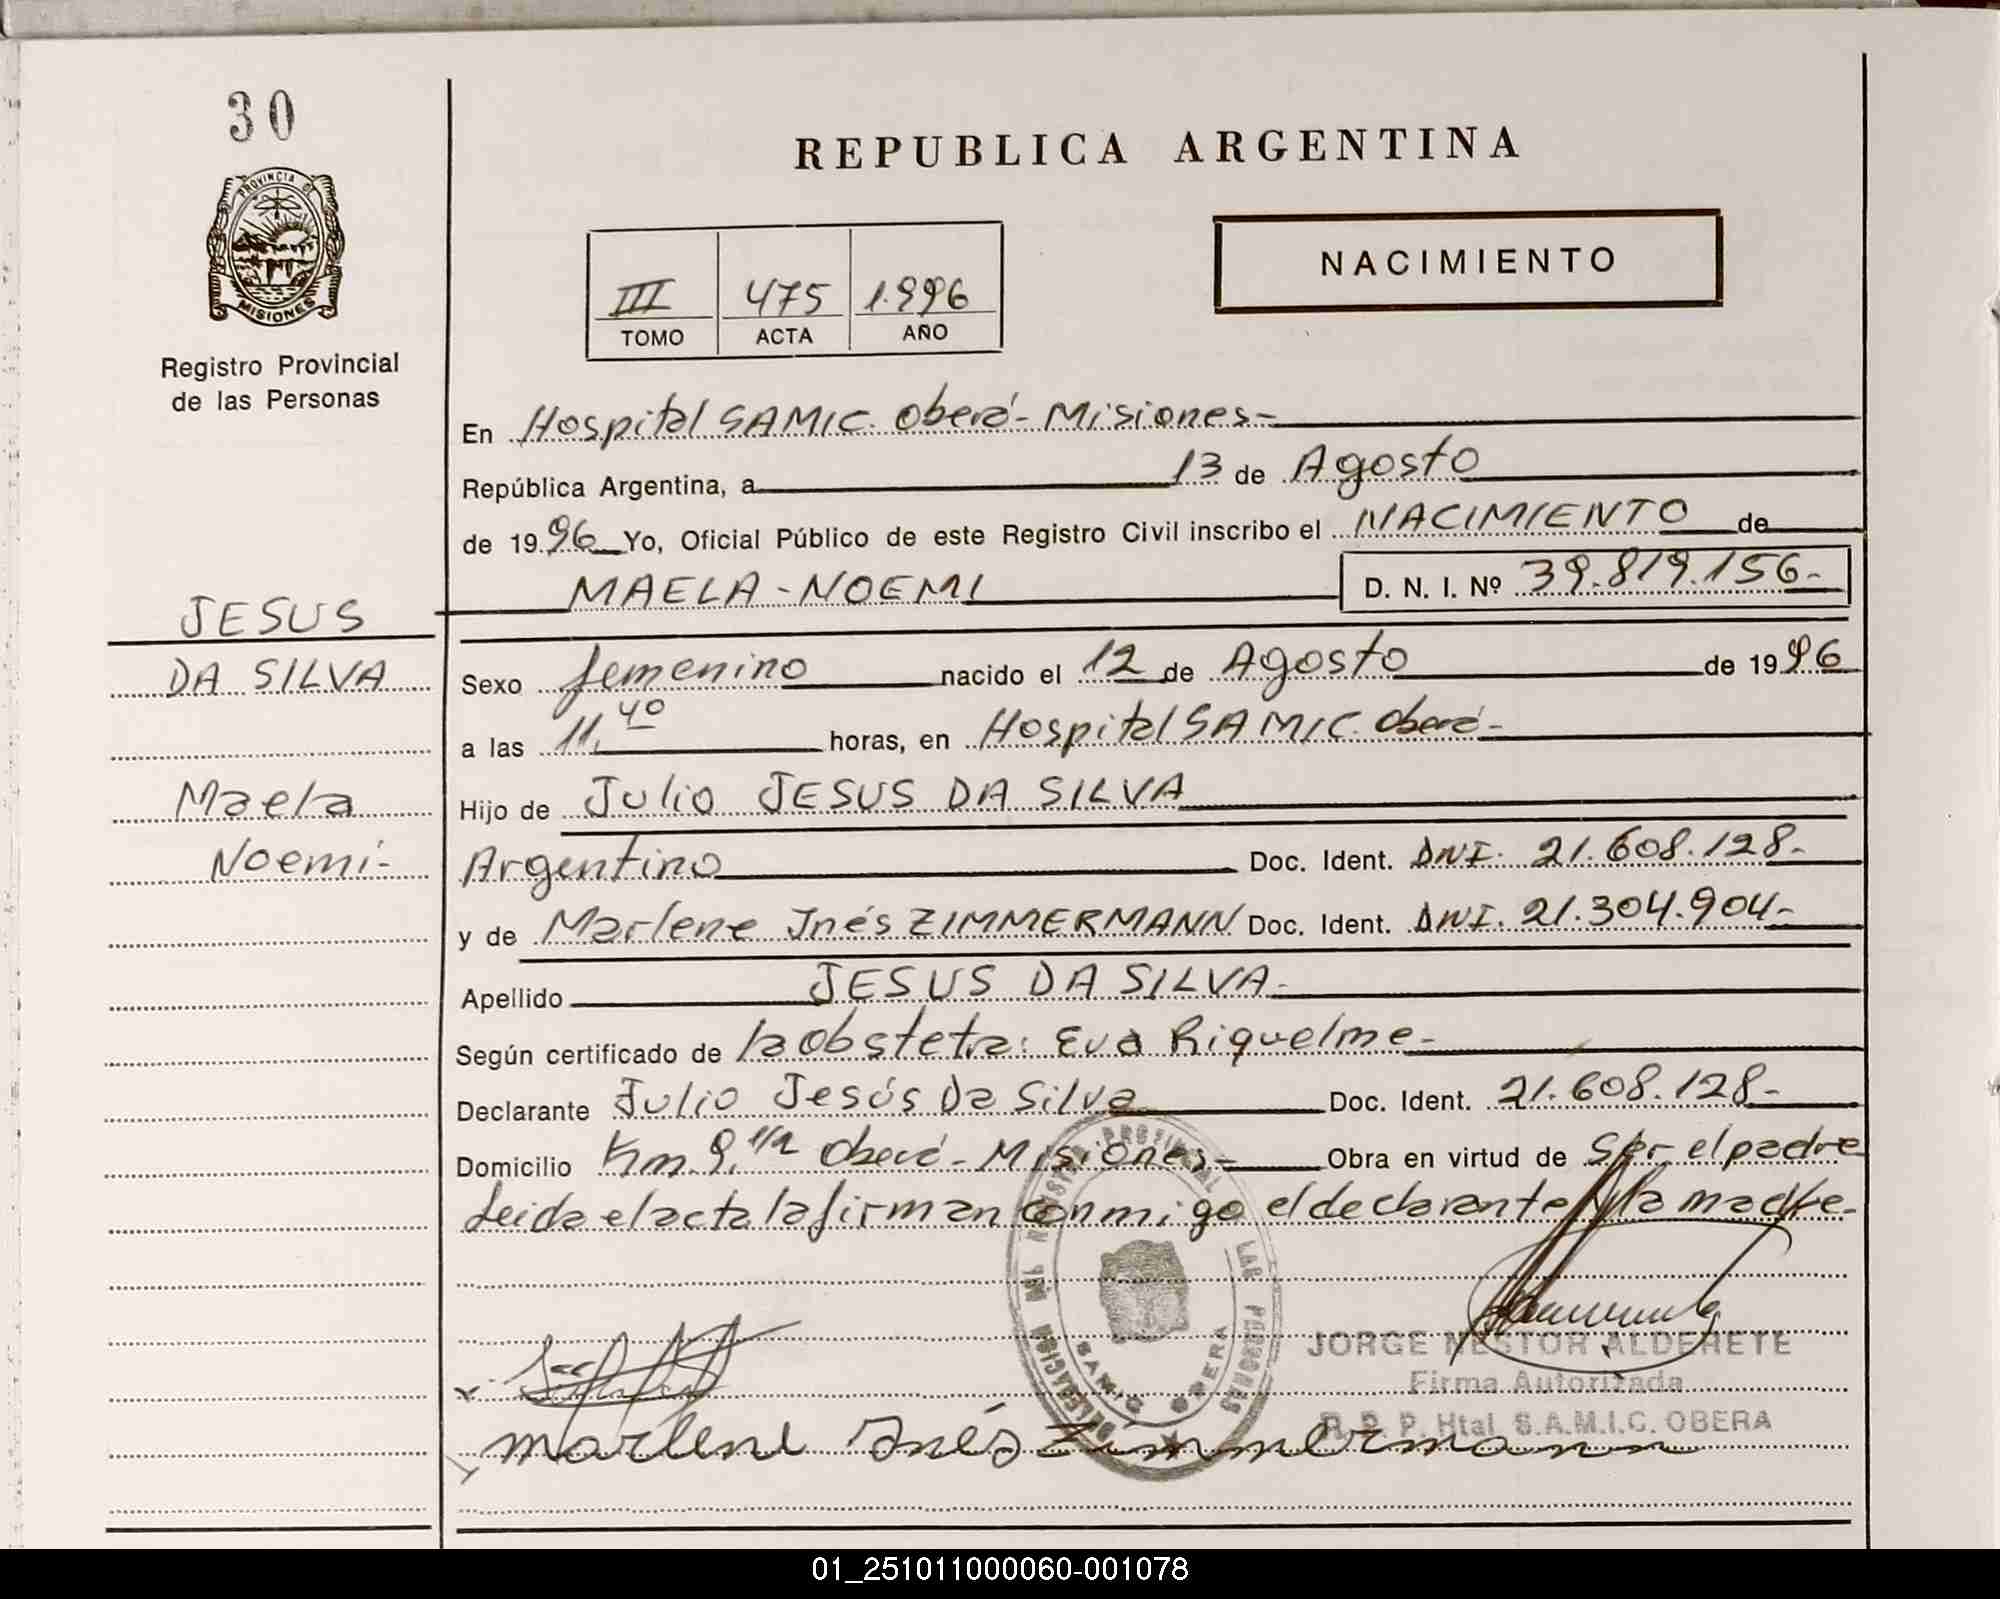 30
PROVINCIA DE
MISIONES
Registro Provincial
de las Personas
REPUBLICA ARGENTINA
NACIMIENTO
III 475 1.996
TOMO ACTA AÑO
En Hospital SAMIC. Oberá- Misiones-
República Argentina, a 13 de Agosto
de 1996 Yo, Oficial Público de este Registro Civil inscribo el NACIMIENTO de
MAELA-NOEMI D. N. I. Nº 39.819.156.-
JESUS
DA SILVA
Maela
Noemí-
Sexo femenino nacido el 12 de Agosto de 1996
a las 11,40 horas, en Hospital SAMIC. Oberá-
Hijo de Julio JESUS DA SILVA
Argentino Doc. Ident. DNI. 21.608.128.-
y de Marlene Inés ZIMMERMANN Doc. Ident. DNI. 21.304.904-
Apellido JESUS DA SILVA.-
Según certificado de la obstetra: Eva Riquelme-
Declarante Julio Jesús Da Silva Doc. Ident. 21.608.128-
Domicilio Km 9,1/2 Oberá-Misiones- Obra en virtud de Ser el padre
Leida el acta la firman conmigo el declarante y la madre-
DELEGACION REGISTRO PROVINCIAL LAS PERSONAS
SAMIC OBERA
JORGE NESTOR ALDERETE
Firma Autorizada
R. P. P. Htal. S.A.M.I.C. OBERA
Marlene Inés Zimmermann
01_251011000060-001078